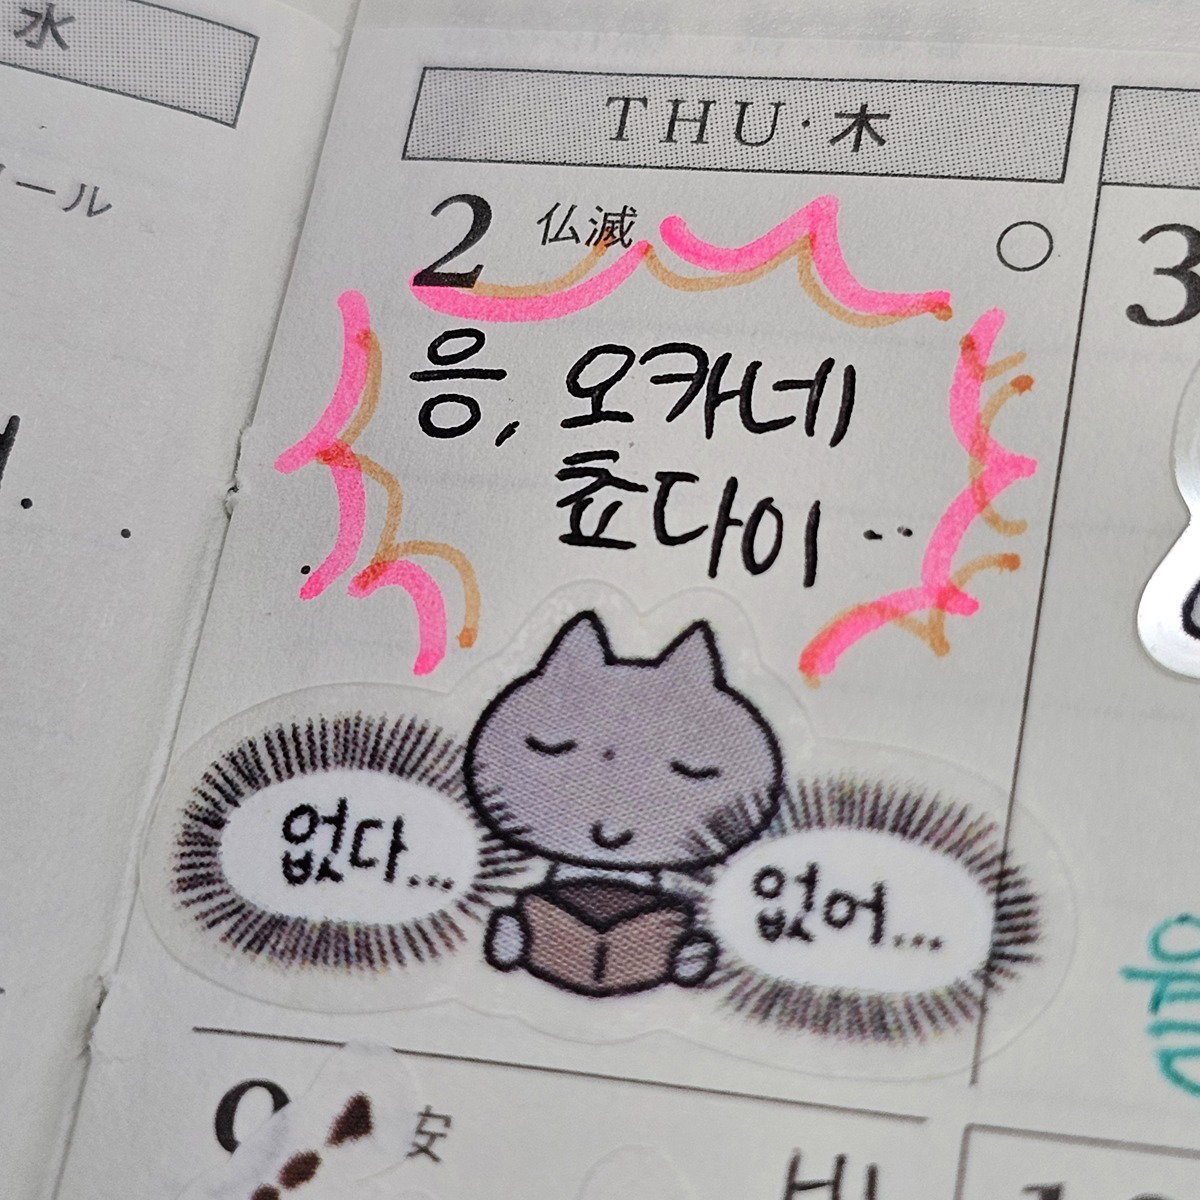 水
ール
THU·木
2 仏滅
3
응, 오카네
쵸다이..
없다...
없어...
9 安